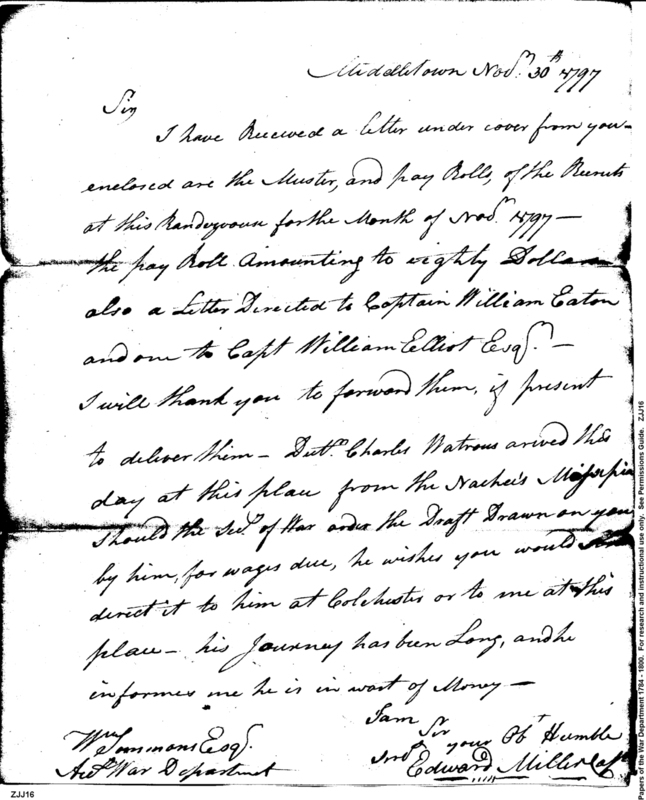 Middletown Novr. 30th 1797
Sir
I have Received a letter under cover from you -
enclosed are the Muster, and pay Rolls, of the Recruits
at this Randezvouse for the Month of Novr. 1797 -
the pay Roll Amounting to eighty Dollars
also a Letter Directed to Captain William Eaton
and one to Capt William Elliot Esqr. -
I will thank you to forward them, if present
to deliver them - Doctr. Charles Watrous arived this
day at this place from the Nachei's Missipia
should the Secy. of War order the Draft Drawn on you
by him, for wages due, he wishes you would
direct it to him at Colchester or to me at this
place - his Journey has been Long, and he
informes me he is in want of Money -
I am
Sir
your Obt Humble
Servt
Edward Miller Capt
Wm Simmons Esqr.
Acct War Department
ZJJ16
Papers of the War Department 1784 - 1800. For research and instructional use only. See Permissions Guide. ZJJ16